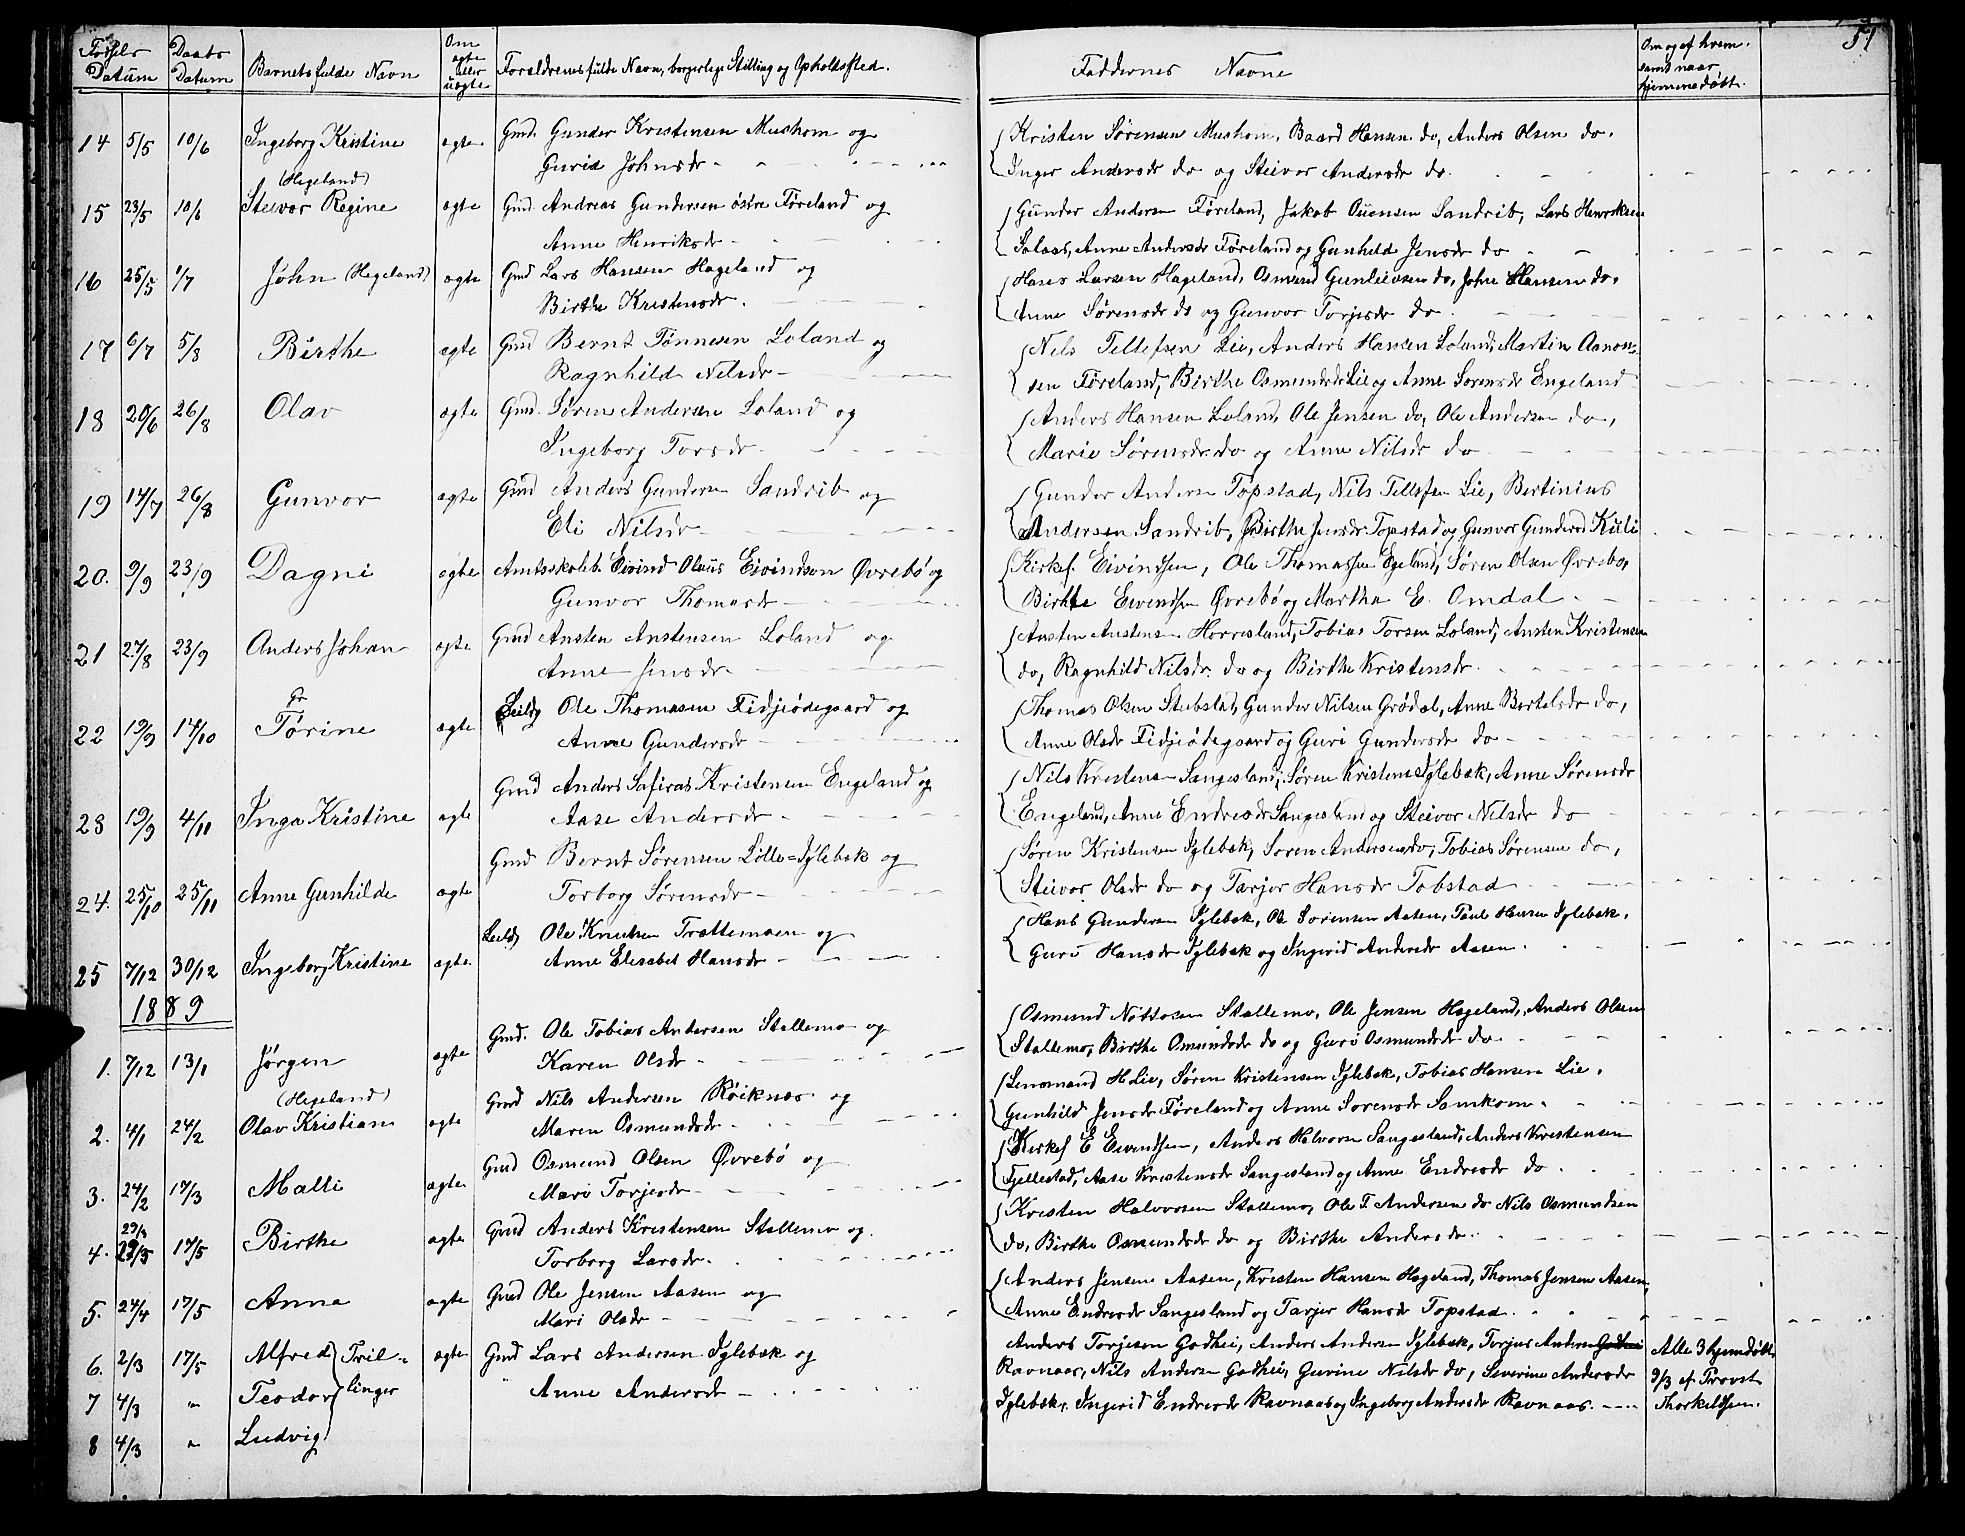 51
Fødsels Datum
Daabs Datum
Barnets fulde Navn
Om ægte eller uægte
Forældrenes fulde Navn, borgerlige Stilling og Opholdssted.
Faddernes Navne
Om og af hvem samt naar hjemmedøbt.
14 5/5 10/6 Ingeborg Kristine ægte Gmd. Gunder Kristensen Mushom og { Kristen Sørensen Mushom, Baard Hansen do, Anders Olsen do.
Gurid Johnsdr Inger Andersdr do og Steivor Andersdr do.
(Hegeland)
15 23/5 10/6 Steivor Regine ægte Gmd. Andreas Gundersen østre Føreland og { Gunder Andersen Føreland, Jakob Ouensen Sandrib, Lars Henriksen
Anne Henriksdr Solaas, Anne Andersdr Føreland og Gunhild Jensdr do
16 25/5 1/7 John (Hegeland) ægte Gmd Lars Hansen Hageland og { Hans Larsen Hageland, Osmund Gunleivsen do, John Hansen do,
Birthe Kristensdr. Anne Sørensdr do og Gunvor Torjesdr do.
17 6/7 5/8 Birthe ægte Gmd Bernt Tønnesen Loland og { Nils Tellefsen Lie, Anders Hansen Loland, Martin Aanon-
Ragnhild Nilsdr sen Føreland, Birthe Osmundsdr Lie og Anne Sørensdr Engeland
18 20/6 26/8 Olav ægte Gmd. Søren Andersen Loland og { Anders Hansen Loland, Ole Jensen do, Ole Andersen do,
Ingeborg Torsdr. Marie Sørensdr. do og Anne Nilsdr do
19 14/7 26/8 Gunvor ægte Gmd Anders Gundersen Sandrib og { Gunder Andersen Topstad, Nils Tellefsen Lie, Bertinius
Eli Nilsdr Andersen Sandrib, Birthe Jensdr Topstad og Gunvor Gundersd Kuli
20. 9/9 23/9 Dagni ægte Amtsskoleb. Eivind Olaus Eivindson Øvrebø og { Kirkes. Eivindsen, Ole Thomassen Egeland, Søren Olsen Øvrebø,
Gunvor Thomasdr Birthe Eivendsen Øvrebø og Martha E. Omdal
21 27/8 23/9 Anders Johan ægte Gmd Ansten Anstensen Loland og { Ansten Anstensen Horrisland, Tobias Torsen Loland, Ansten Kristensen
Anne Jensdr. do, Ragnhild Nilsdr. do og Birthe Kristensdr.
22 19/9 14/10 Tørine ægte Leild Ole Thomasen Fidjeødegaard og { Thomas Olsen Stubslid, Gunder Nilsen Grødal, Anne Bertelsdr do,
Anne Gundersdr Anne Olsdr Fidjeødegaard og Guri Gundersdr do
23 19/9 4/11 Inga Kristine ægte Gmd Anders Safiras Kristensen Engeland og { Nils Kristensen Sangesland, Søren Kristensen Iglebæk, Anne Sørensdr
Aase Andersdr Engeland, Anne Endresdr Sangesland og Steivor Nilsdr do
24. 25/10 25/11 Anne Gunhilde ægte Gmd Bernt Sørensen Lølle=Iglebæk og { Søren Kristensen Iglebæk, Søren Andersen do, Tobias Sørensen do,
Torborg Sørensdr Steivor Olsdr do og Tarjer Hansdr Tobstad
25 7/12 30/12 Ingeborg Kristine ægte. Leild Ole Knutsen Trættemoen og { Hans Gundersen Iglebæk, Ole Sørensen Aasen, Paul Hansen Iglebæk,
Anne Elisabet Hansdr Guri Hansdr Iglebæk og Ingerid Andersdr Aasen.
1889
1. 7/12 13/1 Jørgen ægte Gmd. Ole Tobias Andersen Stallemo og { Osmund Nottosen Stallemo, Ole Jensen Hageland, Anders Olsen
Karen Olsdr Stallemo, Birthe Osmundsdr do og Guro Osmundsdr do
(Hegeland)
2. 4/1 24/2 Olav Kristian ægte Gmd Nils Andersen Røiknes og { Lensmand H Lie, Søren Kristensen Iglebæk, Tobias Hansen Lie,
Maren Osmundsdr. Gunhild Jensdr Føreland og Anne Sørensdr Samkom.
3. 24/2 17/3 Malli ægte Gmd Osmund Olsen Øvrebø og { Kirkes E Eivendsen, Anders Halvorsen Sangesland, Anders Kristensen
Mari Torjesdr Fjellestad, Aase Kristensdr Sangesland og Anne Endresdr do.
4. 29/3 17/5 Birthe ægte Gmd Anders Kristensen Stallemo og { Kristen Halvorsen Stallemo, Ole T. Andersen do Nils Osmundsen
Torborg Larsdr. do, Birthe Osmundsdr do og Birthe Andersdr.
5. 24/4 17/5 Anna ægte Gmd Ole Jensen Aasen og { Anders Jensen Aasen, Kristen Hansen Hageland, Thomas Jensen Aasen,
Mari Olsdr Anne Endresdr Sangesland og Tarjer Hansdr Topstad.
6. 2/3 17/5 Alfred } Tril- ægte Gmd Lars Andersen Iglebæk og Anders Torjesen Godhei, Anders Andersen Iglebæk, Torjus Andersen Godhei Alle 3 hjemdøbt
7 4/3 " Teodor } linger " Anne Andersdr Ravnaas, Nils Andersen Godhei, Gurine Nilsdr do, Severine Andersdr 9/3 af Provst
8 4/3 " Ludvig } Iglebæk, Ingerid Endresdr Ravnaas og Ingeborg Andersdr Ravnaas. Thorkelsen.